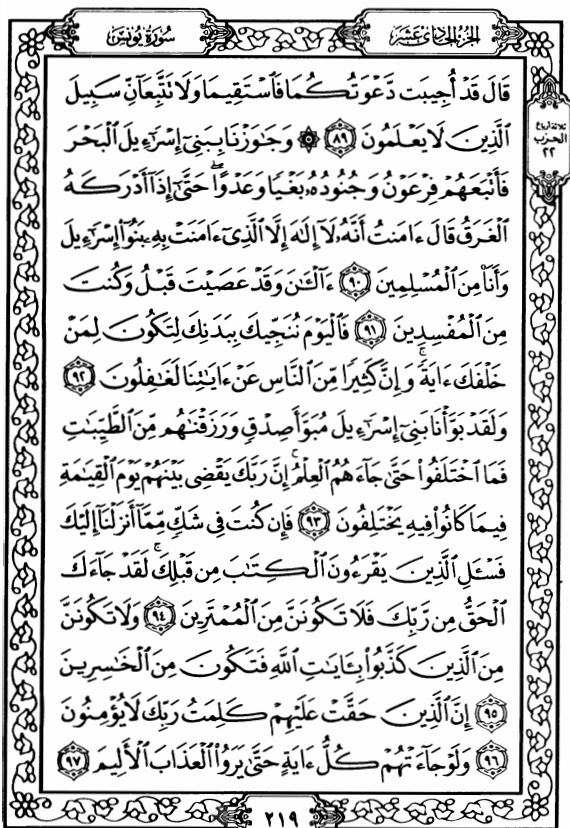 سُورَةُ يُونُسَ
الجُزْءُ الحَادِي عَشَرَ
ثلاثة أرباع
الحزب
٢٢
قَالَ قَدْ أُجِيبَت دَّعْوَتُكُمَا فَٱسْتَقِيمَا وَلَا تَتَّبِعَآنِّ سَبِيلَ
ٱلَّذِينَ لَا يَعْلَمُونَ ٨٩ ۞ وَجَٰوَزْنَا بِبَنِىٓ إِسْرَٰٓءِيلَ ٱلْبَحْرَ
فَأَتْبَعَهُمْ فِرْعَوْنُ وَجُنُودُهُۥ بَغْيًا وَعَدْوًا ۖ حَتَّىٰٓ إِذَآ أَدْرَكَهُ
ٱلْغَرَقُ قَالَ ءَامَنتُ أَنَّهُۥ لَآ إِلَٰهَ إِلَّا ٱلَّذِىٓ ءَامَنَتْ بِهِۦ بَنُوٓا۟ إِسْرَٰٓءِيلَ
وَأَنَا۠ مِنَ ٱلْمُسْلِمِينَ ٩٠ ءَآلْـَٰٔنَ وَقَدْ عَصَيْتَ قَبْلُ وَكُنتَ
مِنَ ٱلْمُفْسِدِينَ ٩١ فَٱلْيَوْمَ نُنَجِّيكَ بِبَدَنِكَ لِتَكُونَ لِمَنْ
خَلْفَكَ ءَايَةً ۚ وَإِنَّ كَثِيرًا مِّنَ ٱلنَّاسِ عَنْ ءَايَٰتِنَا لَغَٰفِلُونَ ٩٢
وَلَقَدْ بَوَّأْنَا بَنِىٓ إِسْرَٰٓءِيلَ مُبَوَّأَ صِدْقٍ وَرَزَقْنَٰهُم مِّنَ ٱلطَّيِّبَٰتِ
فَمَا ٱخْتَلَفُوا۟ حَتَّىٰ جَآءَهُمُ ٱلْعِلْمُ ۚ إِنَّ رَبَّكَ يَقْضِى بَيْنَهُمْ يَوْمَ ٱلْقِيَٰمَةِ
فِيمَا كَانُوا۟ فِيهِ يَخْتَلِفُونَ ٩٣ فَإِن كُنتَ فِى شَكٍّ مِّمَّآ أَنزَلْنَآ إِلَيْكَ
فَسْـَٔلِ ٱلَّذِينَ يَقْرَءُونَ ٱلْكِتَٰبَ مِن قَبْلِكَ ۚ لَقَدْ جَآءَكَ
ٱلْحَقُّ مِن رَّبِّكَ فَلَا تَكُونَنَّ مِنَ ٱلْمُمْتَرِينَ ٩٤ وَلَا تَكُونَنَّ
مِنَ ٱلَّذِينَ كَذَّبُوا۟ بِـَٔايَٰتِ ٱللَّهِ فَتَكُونَ مِنَ ٱلْخَٰسِرِينَ
٩٥ إِنَّ ٱلَّذِينَ حَقَّتْ عَلَيْهِمْ كَلِمَتُ رَبِّكَ لَا يُؤْمِنُونَ
٩٦ وَلَوْ جَآءَتْهُمْ كُلُّ ءَايَةٍ حَتَّىٰ يَرَوُا۟ ٱلْعَذَابَ ٱلْأَلِيمَ ٩٧
٢١٩